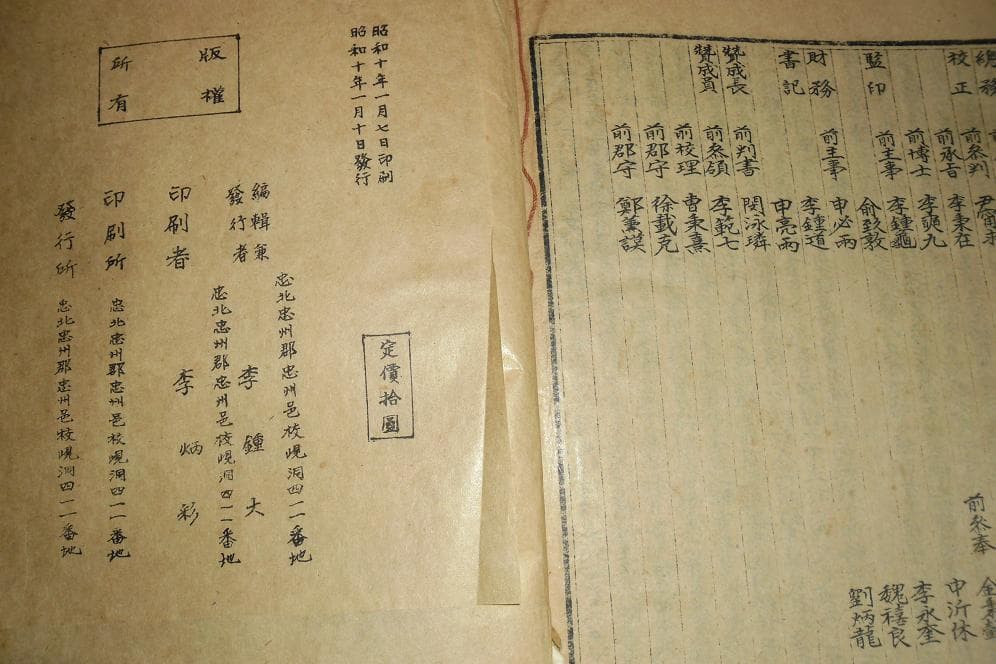 總務
前參判
校正 前承旨 李秉在
前博士 李奭九
監印 前主事 李鍾龜
兪致敦
財務 前主事 申必雨
書記 李鍾道
申亮雨
贊成長 前判書 閔泳璘
贊成員 前參領 李範七
前校理 曹秉熹
前郡守 徐載克
前郡守 鄭兼謨
前參奉
申沂休
李永奎
魏禧良
劉炳龍
昭和十年一月七日印刷
昭和十年一月十日發行
定價拾圓
版權
所有
忠北忠州郡忠州邑校峴洞四一一番地
編輯兼
發行者 李鍾大
忠北忠州郡忠州邑校峴洞四一一番地
印刷者 李炳彩
忠北忠州郡忠州邑校峴洞四一一番地
印刷所
忠北忠州郡忠州邑校峴洞四一一番地
發行所